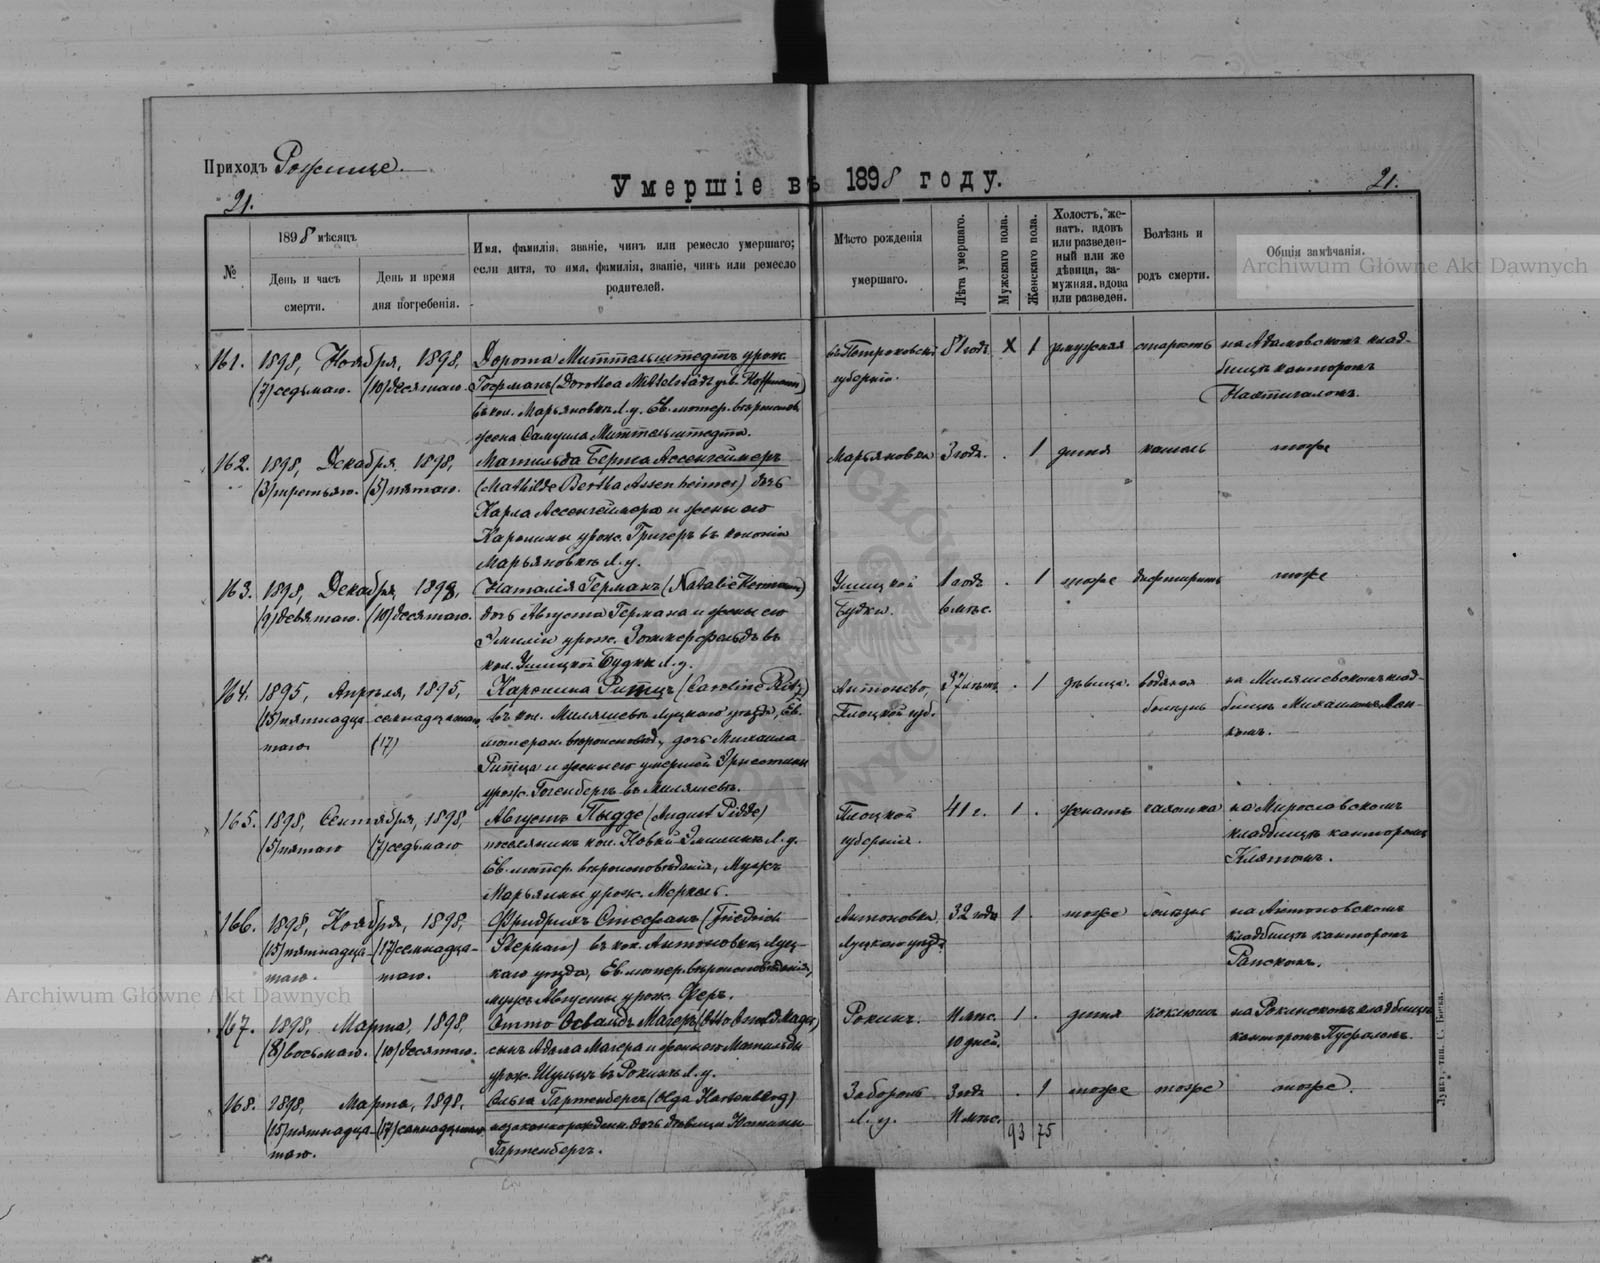 Приходъ Рожище.
Умершіе въ 1898 году.
21.
21.
№
1898 мѣсяцъ
День и часъ
смерти.
День и время
дня погребенія.
Имя, фамилія, званіе, чинъ или ремесло умершаго;
если дитя, то имя, фамилія, званіе, чинъ или ремесло
родителей.
Мѣсто рожденія
умершаго.
Лѣта умершаго.
Мужскаго пола.
Женскаго пола.
Холостъ, же-
натъ, вдовъ
или разведен-
ный или же
дѣвица, за-
мужняя, вдова
или разведен.
Болѣзнь и
родъ смерти.
Общія замѣчанія.
Archiwum Główne Akt Dawnych
161. 1898, Ноября, 1898,
(7) седьмаго. (10) десятаго.
Дорота Миттельштедтъ урож.
Гофманъ (Dorothea Mittelstädt geb. Hoffmann)
въ кол. Марьяновкѣ Л. у. Ев. лютер. вѣроисповѣд.
жена Самуила Миттельштедта.
въ Петроковской
губерніи.
81 годъ X 1 замужняя старость
на Адамовскомъ клад-
бищѣ канторомъ
Нахтигаломъ.
162. 1898, Декабря, 1898,
(3) третьяго. (5) пятаго.
Матильда Берта Ассенгеймеръ
(Mathilde Bertha Assenheimer) дочь
Карла Ассенгеймера и жены его
Каролины урож. Григеръ въ колоніи
Марьяновкѣ Л. у.
Марьяновка 3 года. . 1 дитя кашель тоже
163. 1898, Декабря, 1898,
(9) девятаго. (10) десятаго.
Наталія Германъ (Natalie Hermann)
дочь Августа Германа и жены его
Эмиліи урож. Зоммерфельдъ въ
кол. Ушицкой Будки Л. у.
Ушицкой
Будки.
1 годъ
6 мѣс.
. 1 тоже дифтеритъ тоже
164. 1895, Апрѣля, 1895,
(15) пятнадца-
таго.
семнадцатаго
(17)
Каролина Ритцъ (Caroline Ritz)
въ кол. Миляшевѣ Луцкаго уѣзда, Ев.
лютеран. вѣроисповѣд., дочь Михаила
Ритца и жены его умершей Эрнестины
урож. Гогенбергъ въ Миляшевѣ.
Антоніево,
Плоцкой губ.
37 лѣтъ . 1 дѣвица. водяная
болѣзнь
на Миляшевскомъ клад-
бищѣ Михаиломъ
165. 1898, Сентября, 1898,
(5) пятаго (7) седьмаго
Августъ Пыдде (August Pidde)
поселянинъ кол. Новкй-Земликъ Л. у.
Ев. лютер. вѣроисповѣданія, мужъ
Марьянны урож. Меркель.
Плоцкой
губерніи.
41 г. 1 . женатъ чахотка
на Мирославскомъ
кладбищѣ канторомъ
Клятомъ.
166. 1898, Ноября, 1898,
(15) пятнадца-
таго.
(17) семнадца-
таго.
Фридрихъ Стефанъ (Friedrich
Stephan) въ кол. Антоновкѣ Луц-
каго уѣзда, Ев. лютер. вѣроисповѣданія,
мужъ Августы урож. Феръ.
Антоновка
Луцкаго уѣзда.
32 года 1 . тоже
на Антоновскомъ
кладбищѣ канторомъ
Рапскомъ.
167. 1898, Марта, 1898,
(8) восьмаго. (10) десятаго.
Отто Освальдъ Магеръ (Otto Oswald Mager)
сынъ Адама Магера и жены его Матильды
урож. Шульцъ въ Рокинѣ Л. у.
Рокинъ.
11 мѣс.
10 дней.
1 . дитя коклюшъ
на Рокинскомъ кладбищѣ
канторомъ Пуфаломъ.
168. 1898, Марта, 1898.
(15) пятнадца-
таго.
(17) семнадцатаго
Ольга Гартенбергъ (Olga Hartenberg)
незаконнорожден. дочь дѣвицы
Гартенбергъ.
Забороль
Л. у.
3 года
11 мѣс.
. 1 тоже тоже тоже.
93 75
Archiwum Główne Akt Dawnych